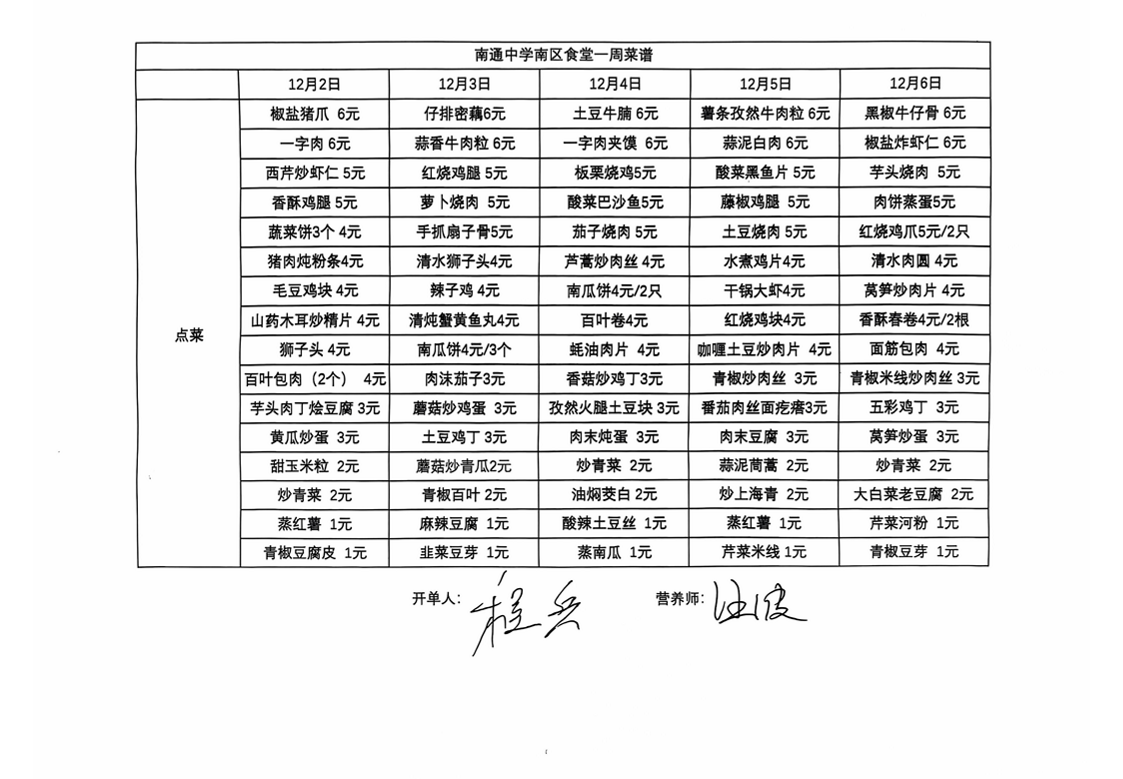 南通中学南区食堂一周菜谱
12月2日 12月3日 12月4日 12月5日 12月6日
点菜
椒盐猪爪 6元 仔排密藕6元 土豆牛腩 6元 薯条孜然牛肉粒 6元 黑椒牛仔骨 6元
一字肉 6元 蒜香牛肉粒 6元 一字肉夹馍 6元 蒜泥白肉 6元 椒盐炸虾仁 6元
西芹炒虾仁 5元 红烧鸡腿 5元 板栗烧鸡5元 酸菜黑鱼片 5元 芋头烧肉 5元
香酥鸡腿 5元 萝卜烧肉 5元 酸菜巴沙鱼5元 藤椒鸡腿 5元 肉饼蒸蛋5元
蔬菜饼3个 4元 手抓扇子骨5元 茄子烧肉 5元 土豆烧肉 5元 红烧鸡爪5元/2只
猪肉炖粉条4元 清水狮子头4元 芦蒿炒肉丝 4元 水煮鸡片4元 清水肉圆 4元
毛豆鸡块 4元 辣子鸡 4元 南瓜饼4元/2只 干锅大虾4元 莴笋炒肉片 4元
山药木耳炒精片 4元 清炖蟹黄鱼丸4元 百叶卷4元 红烧鸡块4元 香酥春卷4元/2根
狮子头 4元 南瓜饼4元/3个 蚝油肉片 4元 咖喱土豆炒肉片 4元 面筋包肉 4元
百叶包肉（2个） 4元 肉沫茄子3元 香菇炒鸡丁3元 青椒炒肉丝 3元 青椒米线炒肉丝 3元
芋头肉丁烩豆腐 3元 蘑菇炒鸡蛋 3元 孜然火腿土豆块 3元 番茄肉丝面疙瘩3元 五彩鸡丁 3元
黄瓜炒蛋 3元 土豆鸡丁 3元 肉末炖蛋 3元 肉末豆腐 3元 莴笋炒蛋 3元
甜玉米粒 2元 蘑菇炒青瓜2元 炒青菜 2元 蒜泥茼蒿 2元 炒青菜 2元
炒青菜 2元 青椒百叶 2元 油焖茭白 2元 炒上海青 2元 大白菜老豆腐 2元
蒸红薯 1元 麻辣豆腐 1元 酸辣土豆丝 1元 蒸红薯 1元 芹菜河粉 1元
青椒豆腐皮 1元 韭菜豆芽 1元 蒸南瓜 1元 芹菜米线 1元 青椒豆芽 1元
开单人： 程兵 营养师： 汪俊